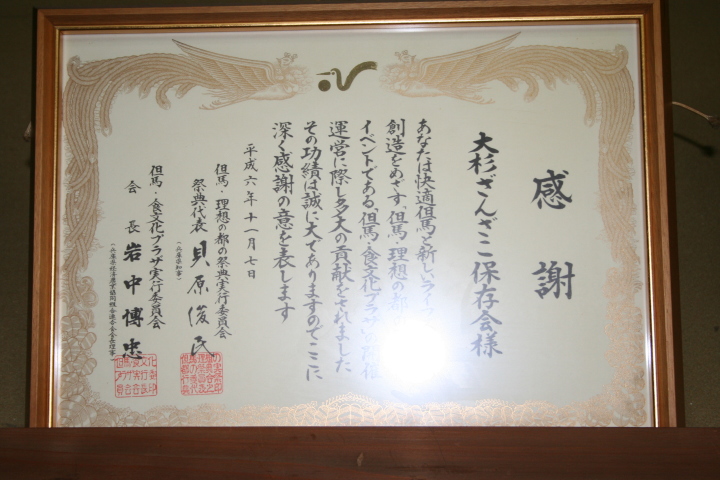 感謝
大杉ざんざこ保存会様
あなたは快適但馬と新しいライフ
創造をめざす、但馬・理想の都の
イベントである、但馬・食文化プラザ
運営に際し多大の貢献をされました
その功績は誠に大でありますのでここに
深く感謝の意を表します
平成六年十一月七日
但馬・理想の都の祭典実行委員会
祭典代表 貝原俊民
(兵庫県知事)
但馬・食文化プラザ実行委員会
会長 岩中博忠